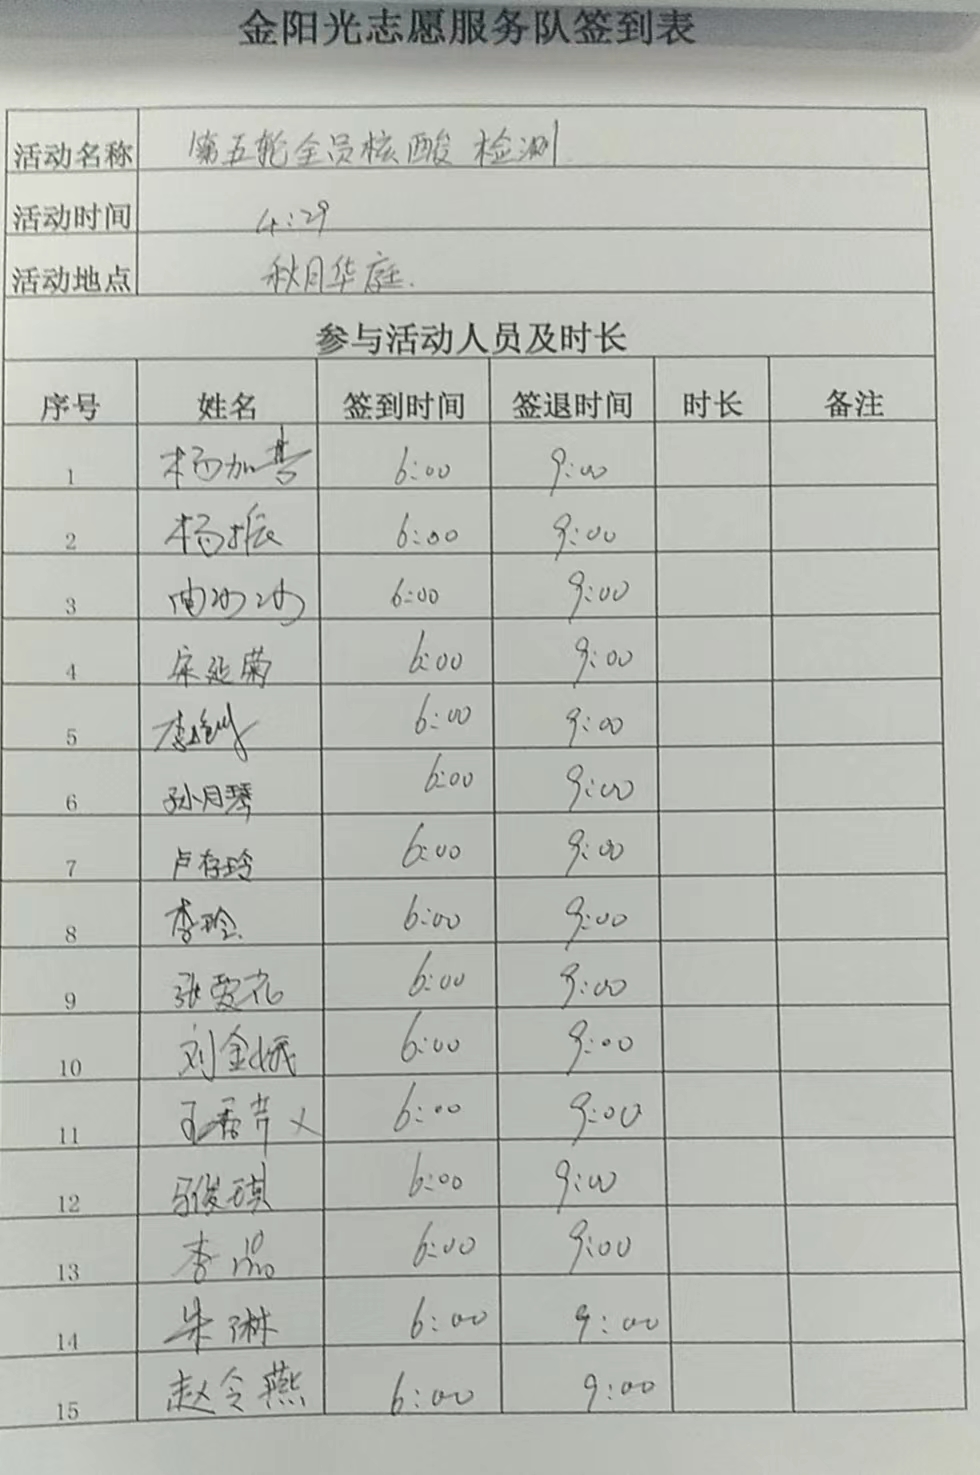 金阳光志愿服务队签到表
活动名称 第五轮全员核酸检测
活动时间 4:29
活动地点 秋月华庭.
参与活动人员及时长
序号 姓名 签到时间 签退时间 时长 备注
1 杨加喜 6:00 9:00
2 杨振 6:00 9:00
3 6:00 9:00
4 宋延菊 6:00 9:00
5 李 6:00 9:00
6 孙月琴 6:00 9:00
7 卢存玲 6:00 9:00
8 李玲 6:00 9:00
9 张贾花 6:00 9:00
10 刘金 6:00 9:00
11 王 6:00 9:00
12 6:00 9:00
13 李品 6:00 9:00
14 朱琳 6:00 9:00
15 赵令燕 6:00 9:00